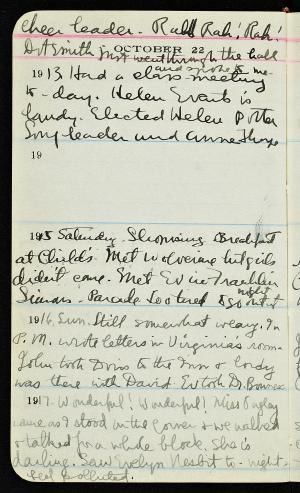 cheer leader. Rah! Rah! Rah!
Dr. Smith just went through the hall
OCTOBER 22
and spoke to me
1913 Had a class meeting
to-day. Helen Evarts is
dandy. Elected Helen Potter
Song leader and Anne
19
1915 Saturday. Shopping. Breakfast
at Childs. Met Wolverine but girls
didn't come. Met Ev in Franklin
night
Simon. Parade
1916. Sun. Still somewhat weary. In
P.M. wrote letters in Virginia's room.
John took Doris to the Inn &
was there with David. Ev took D.
1917. Wonderful! Wonderful! Miss
came as I stood in the corner & we walked
& talked for a whole block. She is
darling. Saw Evelyn Nesbit to-night.
Feel polluted.